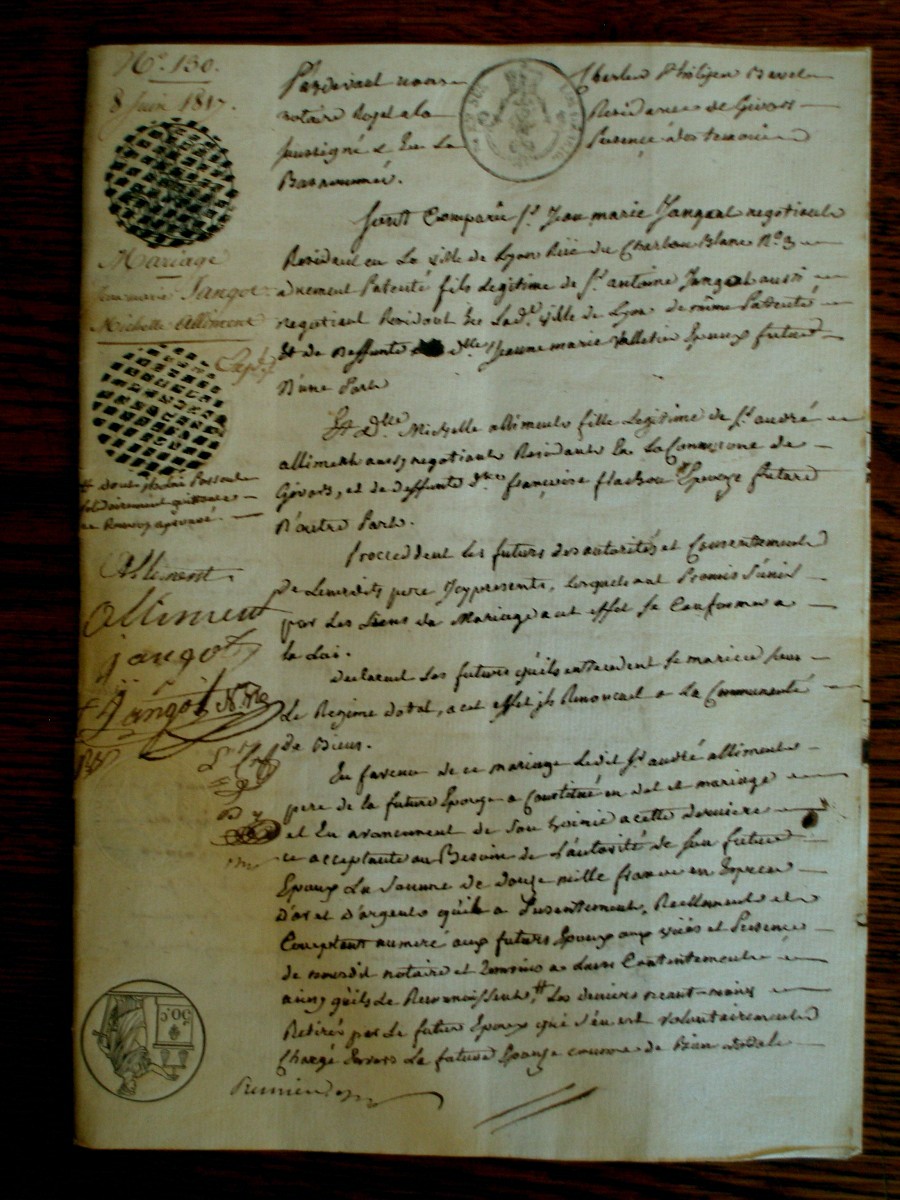 No. 130.
8 Juin 1817.
Mariage
Jean marie Jangot
Michelle Alliment
Allimont
Alliment
jangot
Jangot
Pardevant nous Charles
notaire Royal a la Residence de Givors
soussigné & En La Presence des temoins
Bas nommés.
Sont Comparu Sr. Jean marie Jangot negotiant
Residant en La ville de Lyon Rüe du Charbon Blanc No. 3
duement Patenté fils Legitime de Sr. antoine Jangot aussi
negotiant Residant En Lad. ville de Lyon de même Patenté
Et de deffunte dlle. Jeanne marie Epoux futur
D'une Part
Et dlle. Michelle alliment fille Legitime de Sr. andré
alliment aussy negotiant Residant En La Commune de
Givors, et de deffunte dme. françoise flachon Epouze future
D'autre Part.
Proceddent les futurs des autorités et Consentement
De Leursdits pere Icy presents, lesquels ont Promis S'unir
par Les Liens du Mariage a cet effet se Conformer a
la Loi.
declarent Les futurs qu'ils entendent se marier sous
Le Regime dotal, a cet effet ils Renoncent a La Communauté
de Bieus.
En faveur de ce mariage Ledit Sr. andré alliment
pere de la future Epouze a Constitué en dot et mariage
et En avancement de Son hoirie a cette derniere
ce acceptante au Besoin de L'autorité de son futur
Epoux La Somme de douze mille francs en Especes
D'or et D'argent qu'il a Presentement, Reellement et
Comptant numeré aux futurs Epoux aux vües et Presence
de nousdit notaire et temoins a Leurs Contentement
ainsy qu'ils Le Reconnoissent, Les deniers
Retirés par Le futur Epoux qui s'en est volontairement
Chargé Envers La future Epouze comme de Bien dotale
Premier
50.C